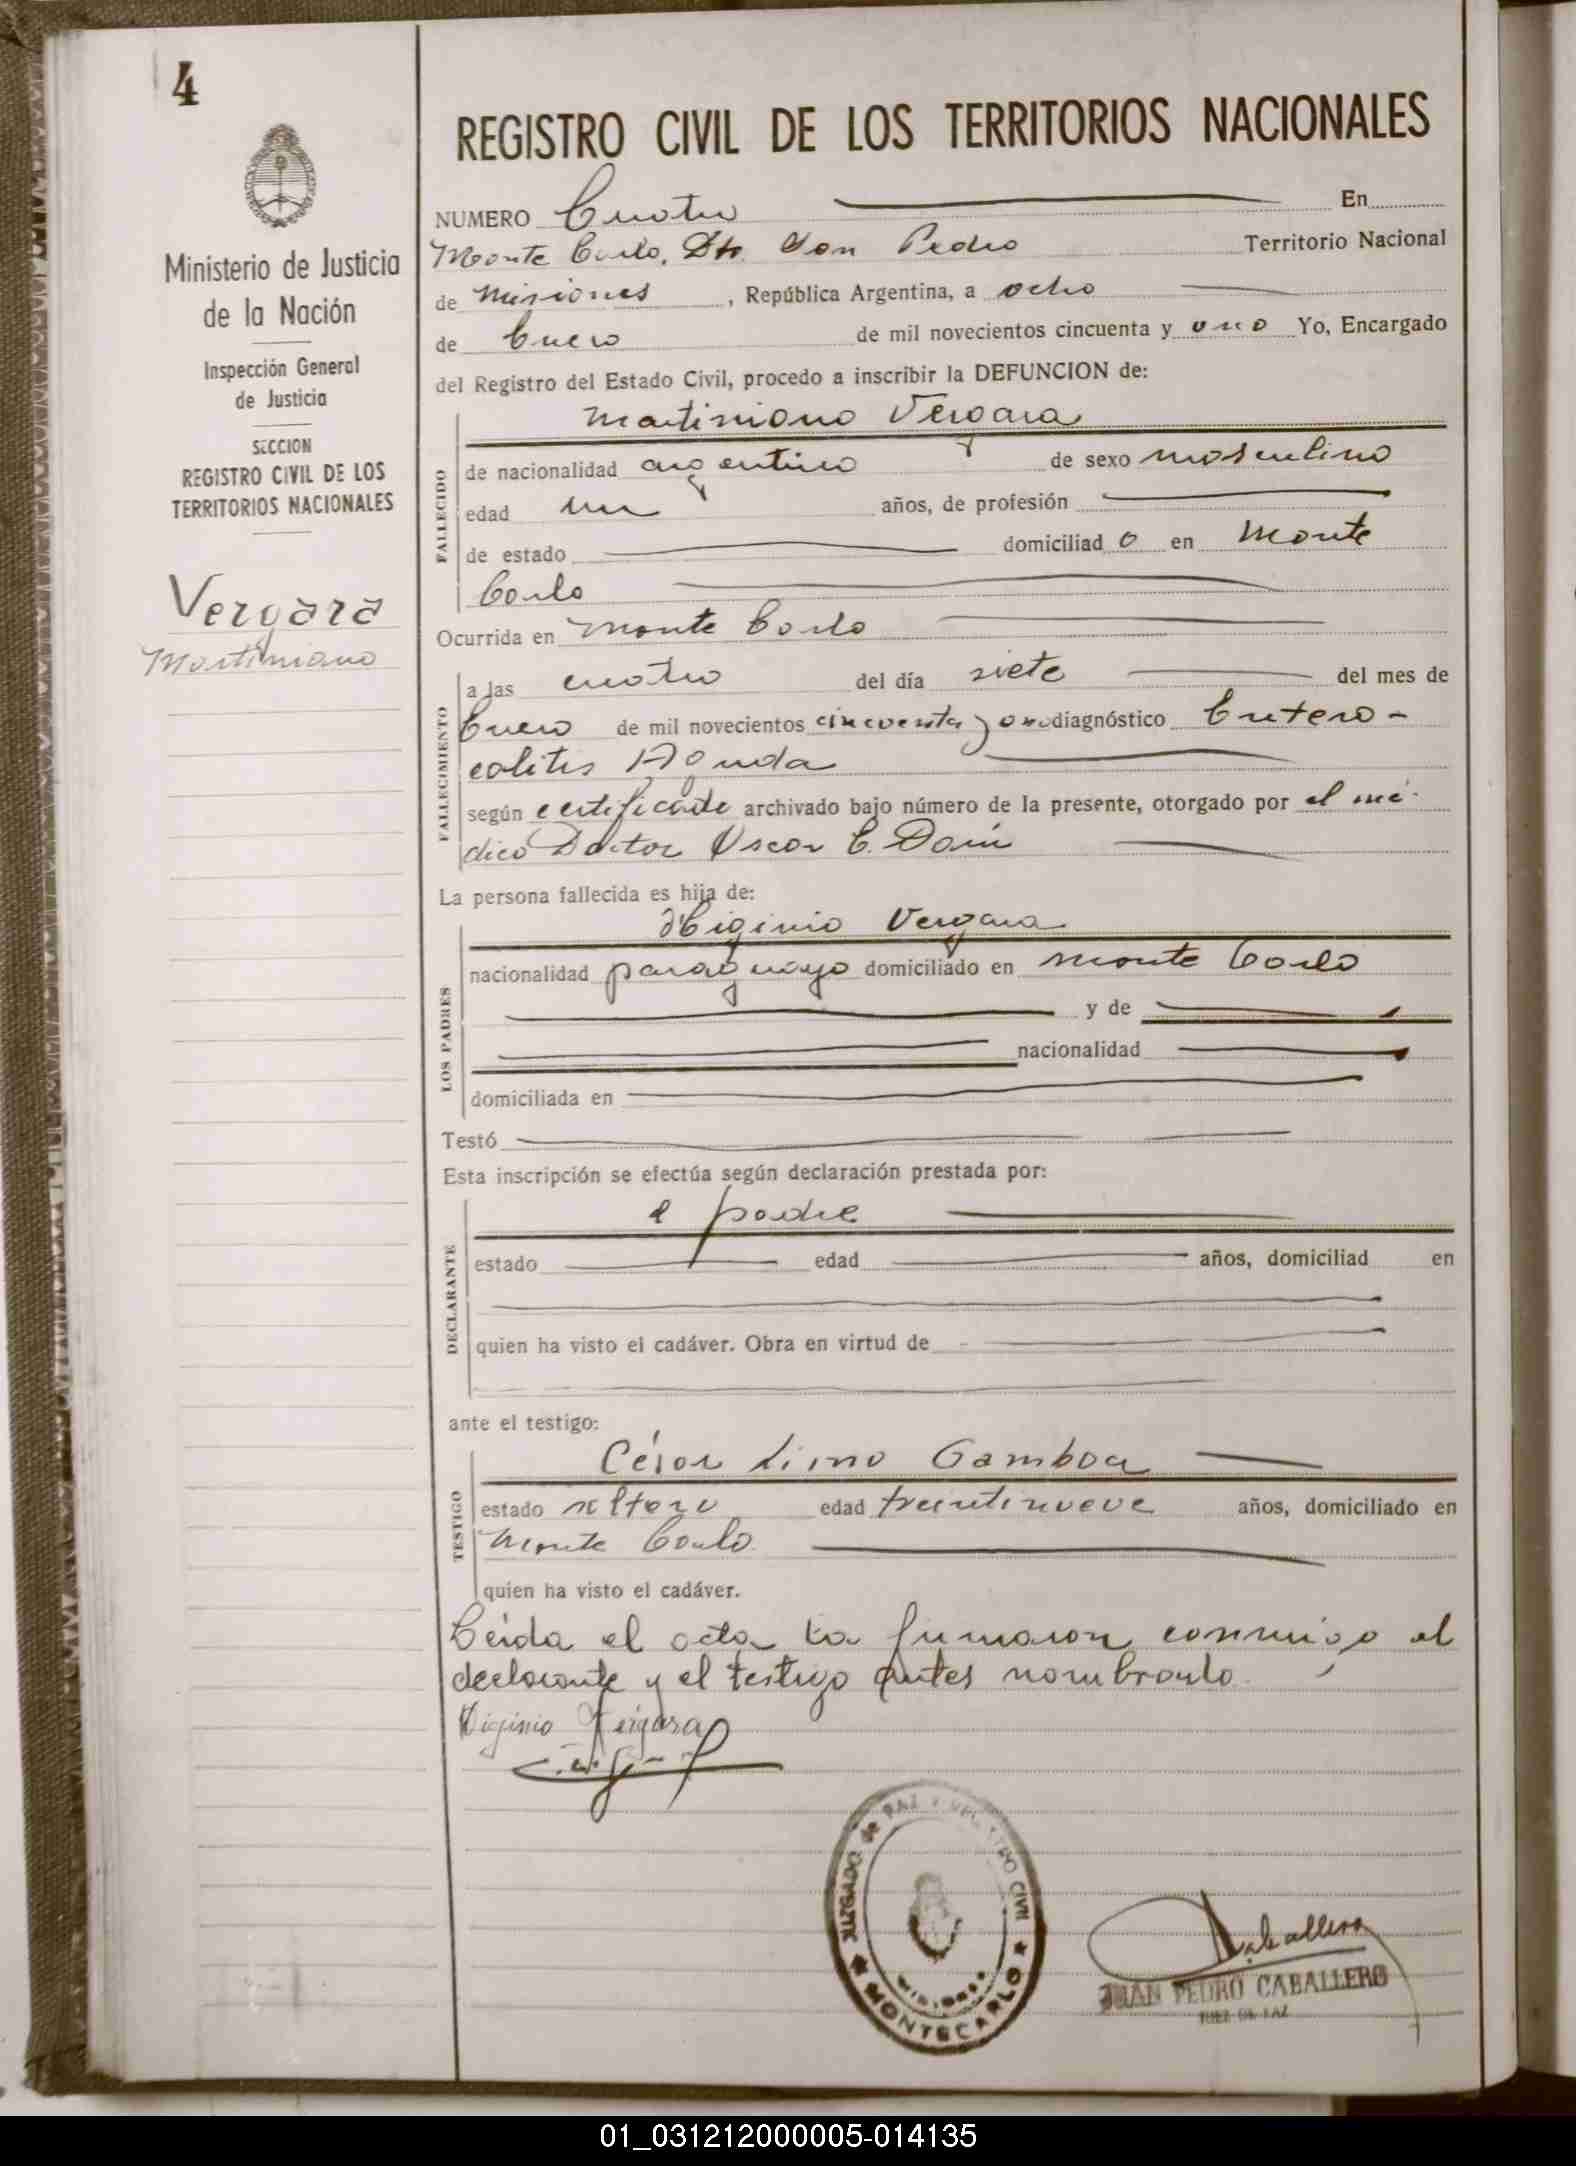 4
Ministerio de Justicia
de la Nación
Inspección General
de Justicia
SECCION
REGISTRO CIVIL DE LOS
TERRITORIOS NACIONALES
Vergara
Martiniano
REGISTRO CIVIL DE LOS TERRITORIOS NACIONALES
NUMERO Cuatro En
Monte Carlo, Dto. San Pedro Territorio Nacional
de Misiones, República Argentina, a ocho
de Enero de mil novecientos cincuenta y uno Yo, Encargado
del Registro del Estado Civil, procedo a inscribir la DEFUNCION de:
Martiniano Vergara
FALLECIDO
de nacionalidad argentino de sexo masculino
edad un años, de profesión
de estado domiciliado en Monte
Carlo
Ocurrida en Monte Carlo
FALLECIMIENTO
a las cuatro del día siete del mes de
Enero de mil novecientos cincuenta y uno diagnóstico Entero-
colitis Aguda
según certificado archivado bajo número de la presente, otorgado por el mé-
dico Doctor Oscar E.
La persona fallecida es hija de:
Higinio Vergara
LOS PADRES
nacionalidad paraguayo domiciliado en Monte Carlo
y de
nacionalidad
domiciliada en
Testó
Esta inscripción se efectúa según declaración prestada por:
el padre
DECLARANTE
estado edad años, domiciliad en
quien ha visto el cadáver. Obra en virtud de
ante el testigo:
César Limo Gamboa
TESTIGO
estado soltero edad treintinueve años, domiciliado en
Monte Carlo
quien ha visto el cadáver.
Leída el acta la firmaron conmigo el
declarante y el testigo antes nombrado.
Higinio Vergara
JUZGADO de PAZ Y REGISTRO CIVIL
MISIONES
MONTECARLO
Caballero
JUAN PEDRO CABALLERO
JUEZ DE PAZ
01_031212000005-014135